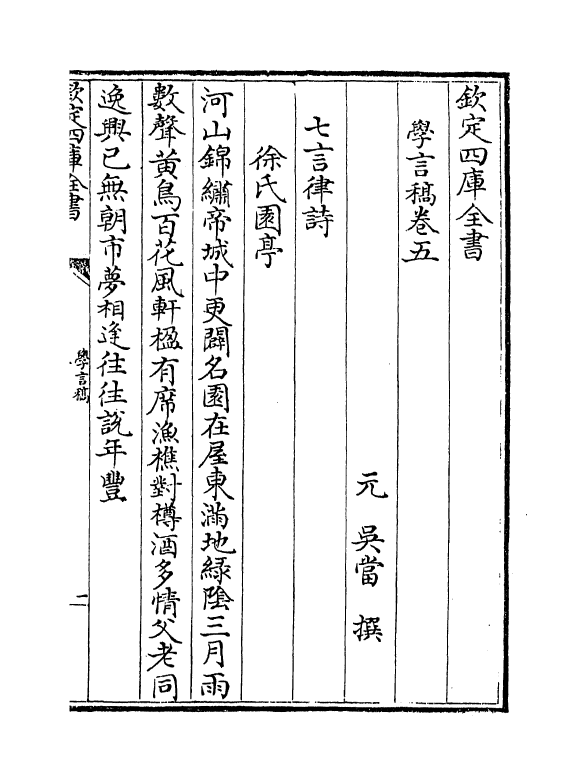 欽定四庫全書
學言稿卷五
元 吳當 撰
七言律詩
徐氏園亭
河山錦繡帝城中更闢名園在屋東滿地綠陰三月雨
數聲黃鳥百花風軒楹有席漁樵對樽酒多情父老同
逸興已無朝市夢相逢往往說年豐
欽定四庫全書
學言稿